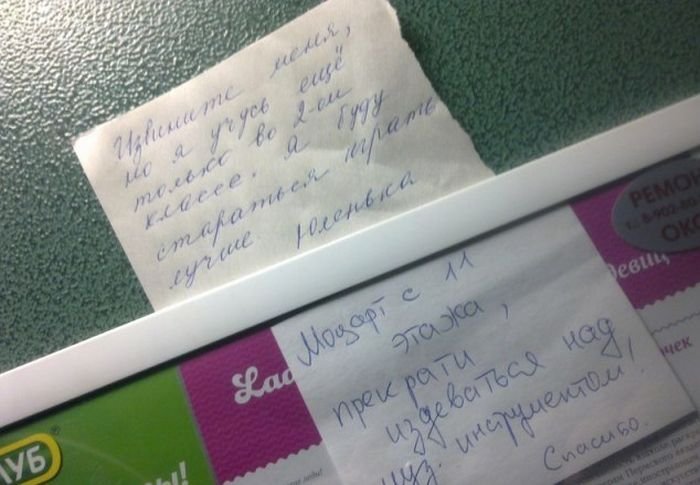 Извините меня,
но я учусь ещё
только во 2-ом
классе. Я буду
стараться играть
лучше Юленька
РЕМОН
ОКО
Моцарт с 11
этажа,
прекрати
издеваться над
муз. инструментом,
Спасибо.
девиц
очек
Lad
УБ
ы!